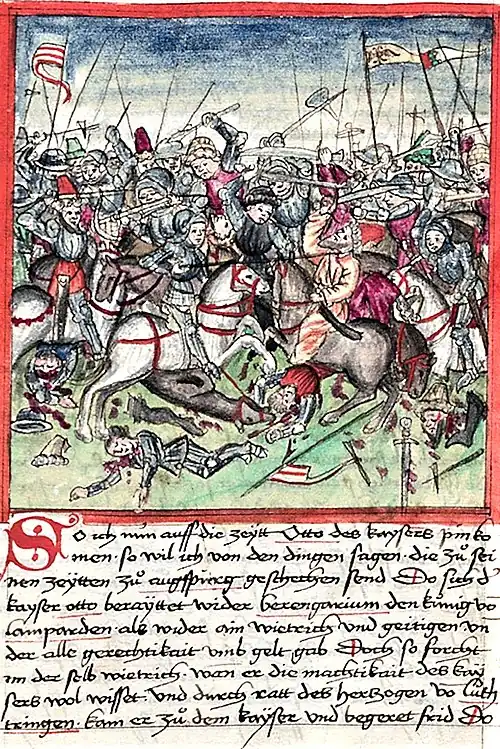 So ich nun auff die zeytt Otto des kaysers pin ko
men · so wil ich von den dingen sagen · die zů sei
nen zeytten zů augspurg geschechen send Do sich d'
kayser otto berayttet wider berengarium den künig vo
lamparden · als wider ain wietrich vnd geitigen vn
der alle gerechtikait vmb gelt gab Doch so forcht
im der selb wietrich · wan er die machtikait des kay
sers wol wisset · vnd durch ratt des hertzogen vo luth
tringen · kam er zů dem kayser vnd begeret frid Do